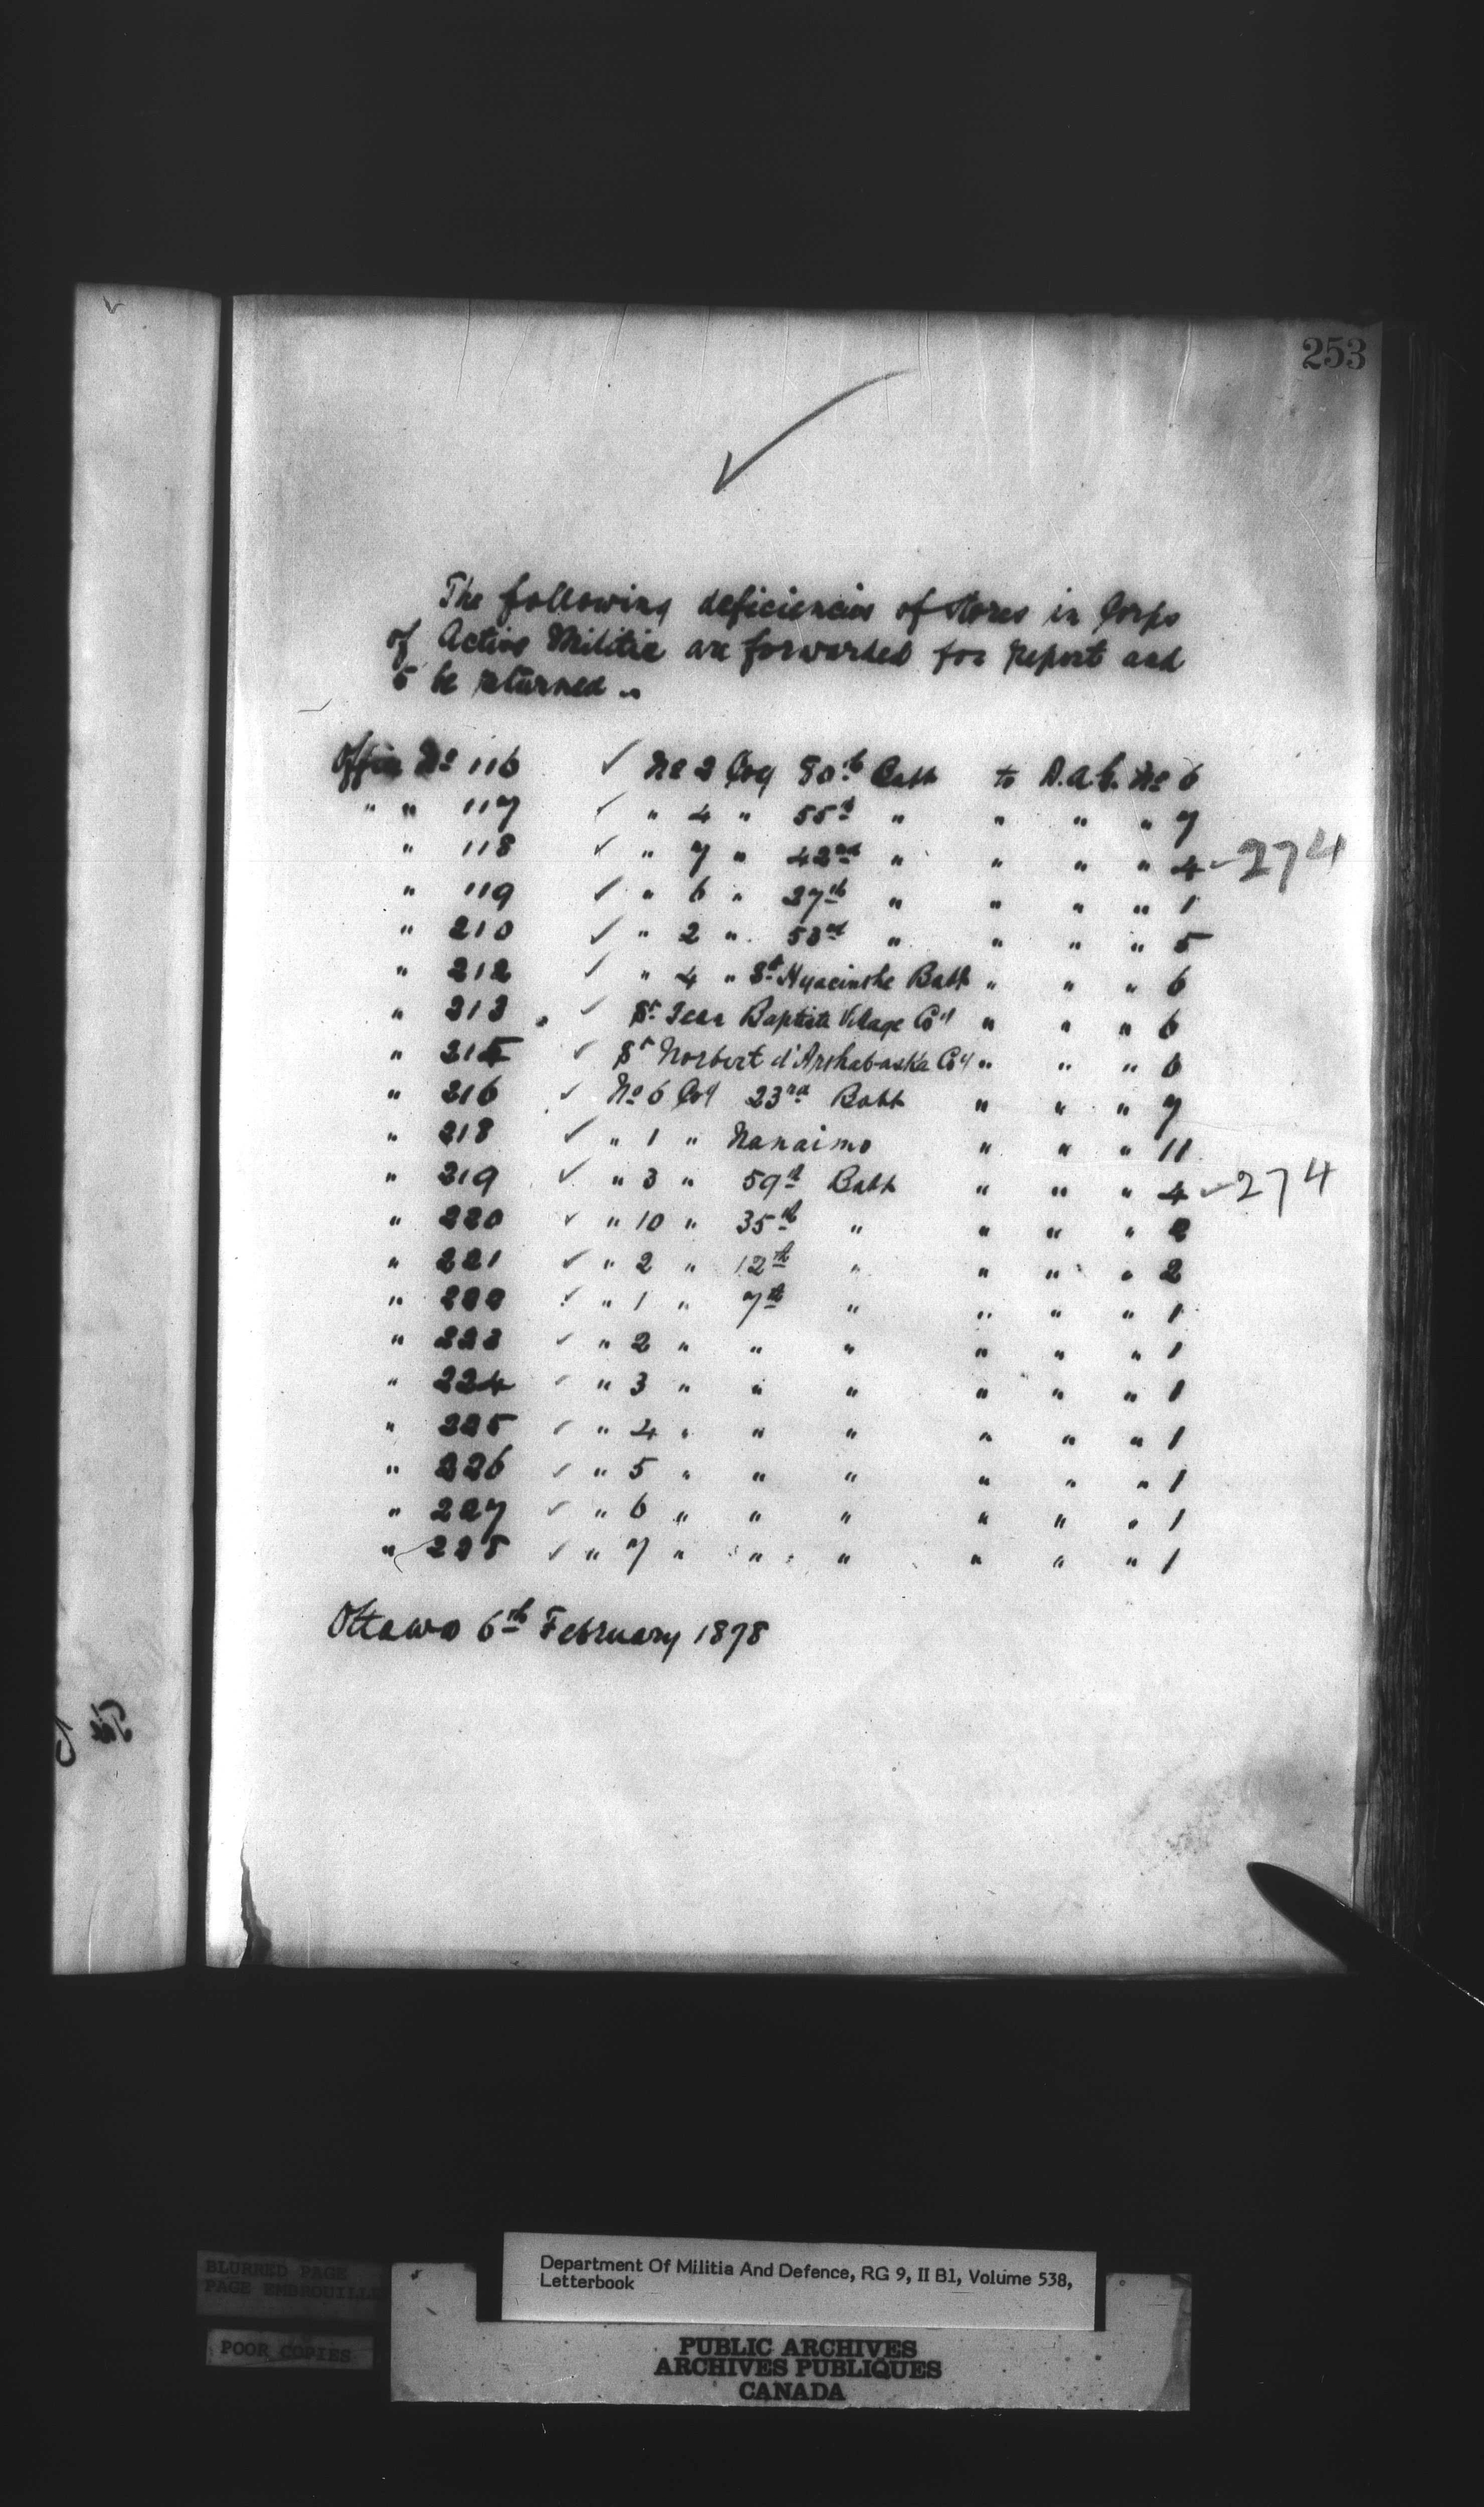 253
The following deficiencies of Stores in Corps
of Active Militia are forwarded for report and
to be returned ..
Office No 116 ✓ No 2 Coy 80th Batt to D.A.G. No 6
" " 117 ✓ " 4 " 55th " " " " 7
" 118 ✓ " 7 " 42nd " " " " 4 - 274
" 119 ✓ " 6 " 27th " " " " 1
" 210 ✓ " 2 " 53rd " " " " 5
" 212 ✓ " 4 " St Hyacinthe Batt " " " 6
" 213 ✓ St Jean Baptiste Village Coy " " " 6
" 215 ✓ St Norbert d'Arthabaska Coy " " " 6
" 216 ✓ No 6 Coy 23rd Batt " " " 7
" 218 ✓ " 1 " Nanaimo " " " 11
" 219 ✓ " 3 " 59th Batt " " " 4 - 274
" 220 ✓ " 10 " 35th " " " " 2
" 221 ✓ " 2 " 12th " " " " 2
" 222 ✓ " 1 " 7th " " " " 1
" 223 ✓ " 2 " " " " " " 1
" 224 ✓ " 3 " " " " " " 1
" 225 ✓ " 4 " " " " " " 1
" 226 ✓ " 5 " " " " " " 1
" 227 ✓ " 6 " " " " " " 1
" 228 ✓ " 7 " " " " " " 1
Ottawa 6th February 1878
BLURRED PAGE
PAGE EMBROUILLE
POOR COPIES
Department Of Militia And Defence, RG 9, II B1, Volume 538,
Letterbook
PUBLIC ARCHIVES
ARCHIVES PUBLIQUES
CANADA